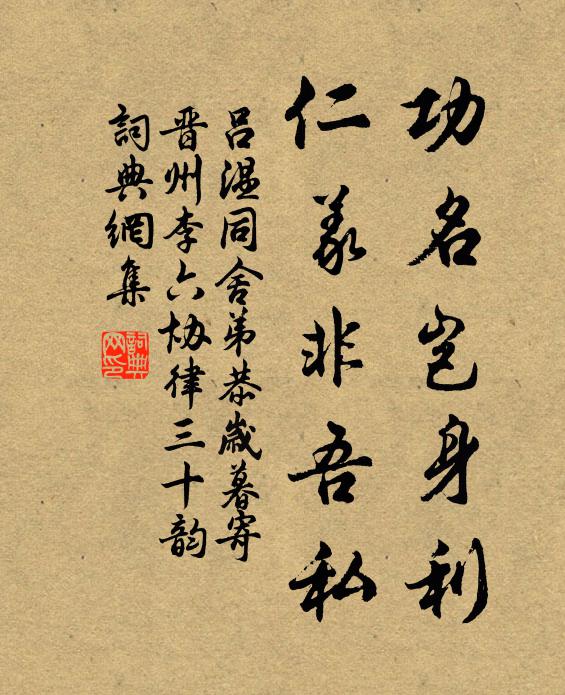 功名岂身利
仁義非吾私
呂温同舍弟恭歲暮寄
晋州李六协律三十韵
詞典網集
詞典
网印